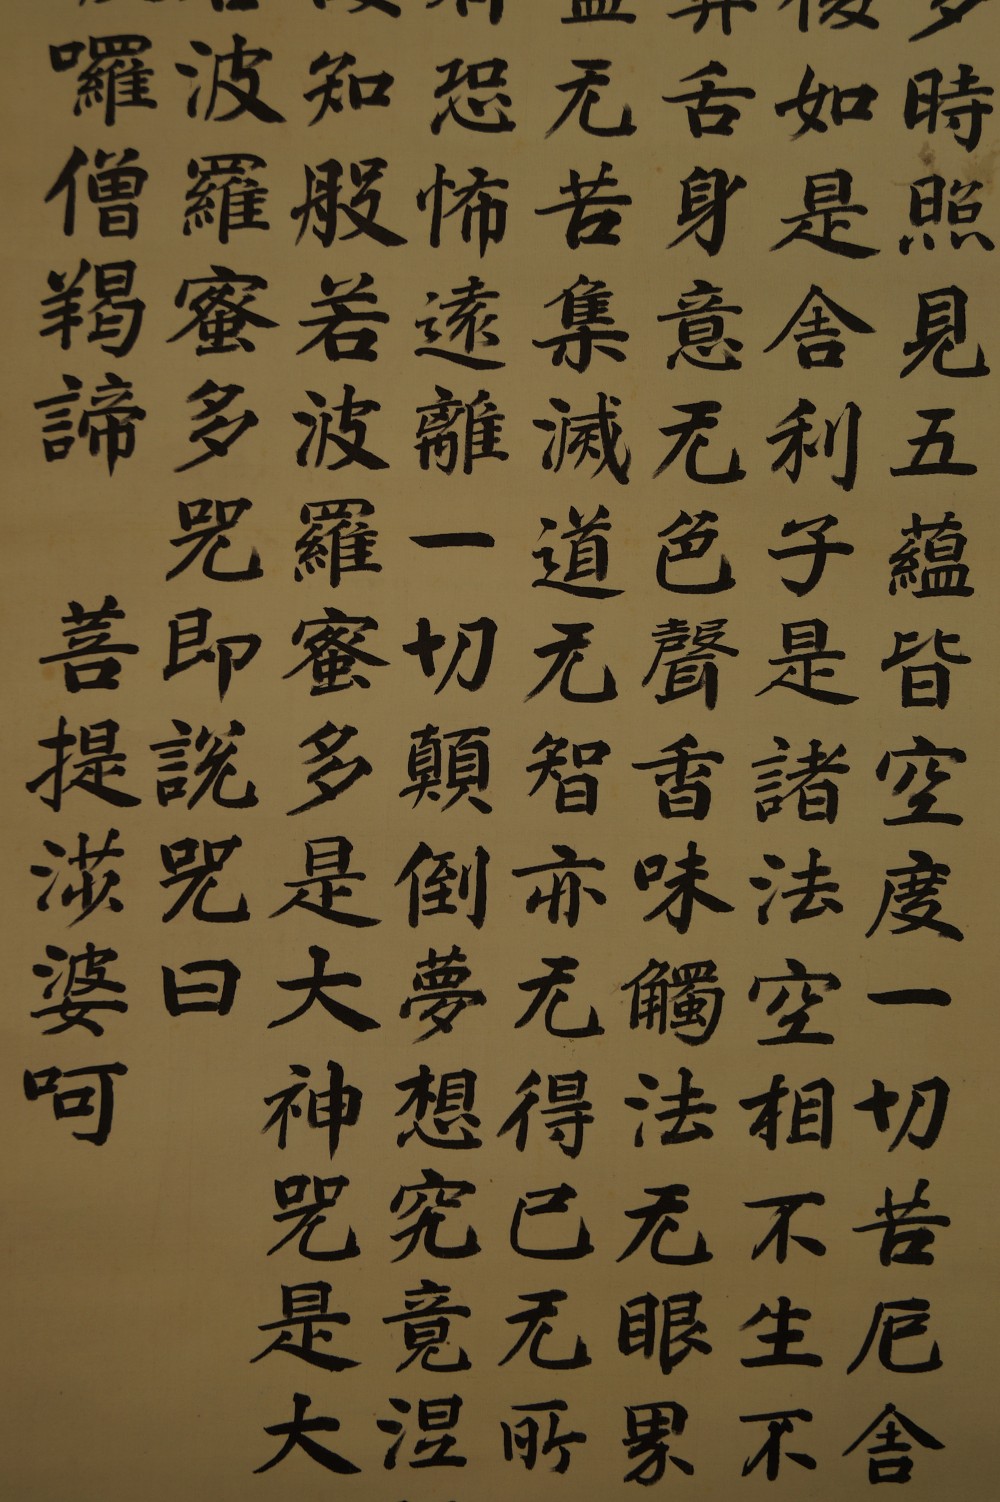 多時照見五蘊皆空度一切苦厄舍
復如是舍利子是諸法空相不生不
鼻舌身意无色聲香味觸法无眼界
盡无苦集滅道无智亦无得已无所
恐怖遠離一切顛倒夢想究竟涅
知般若波羅蜜多是大神咒是大
波羅蜜多咒即說咒曰
囉僧羯諦 菩提
婆呵